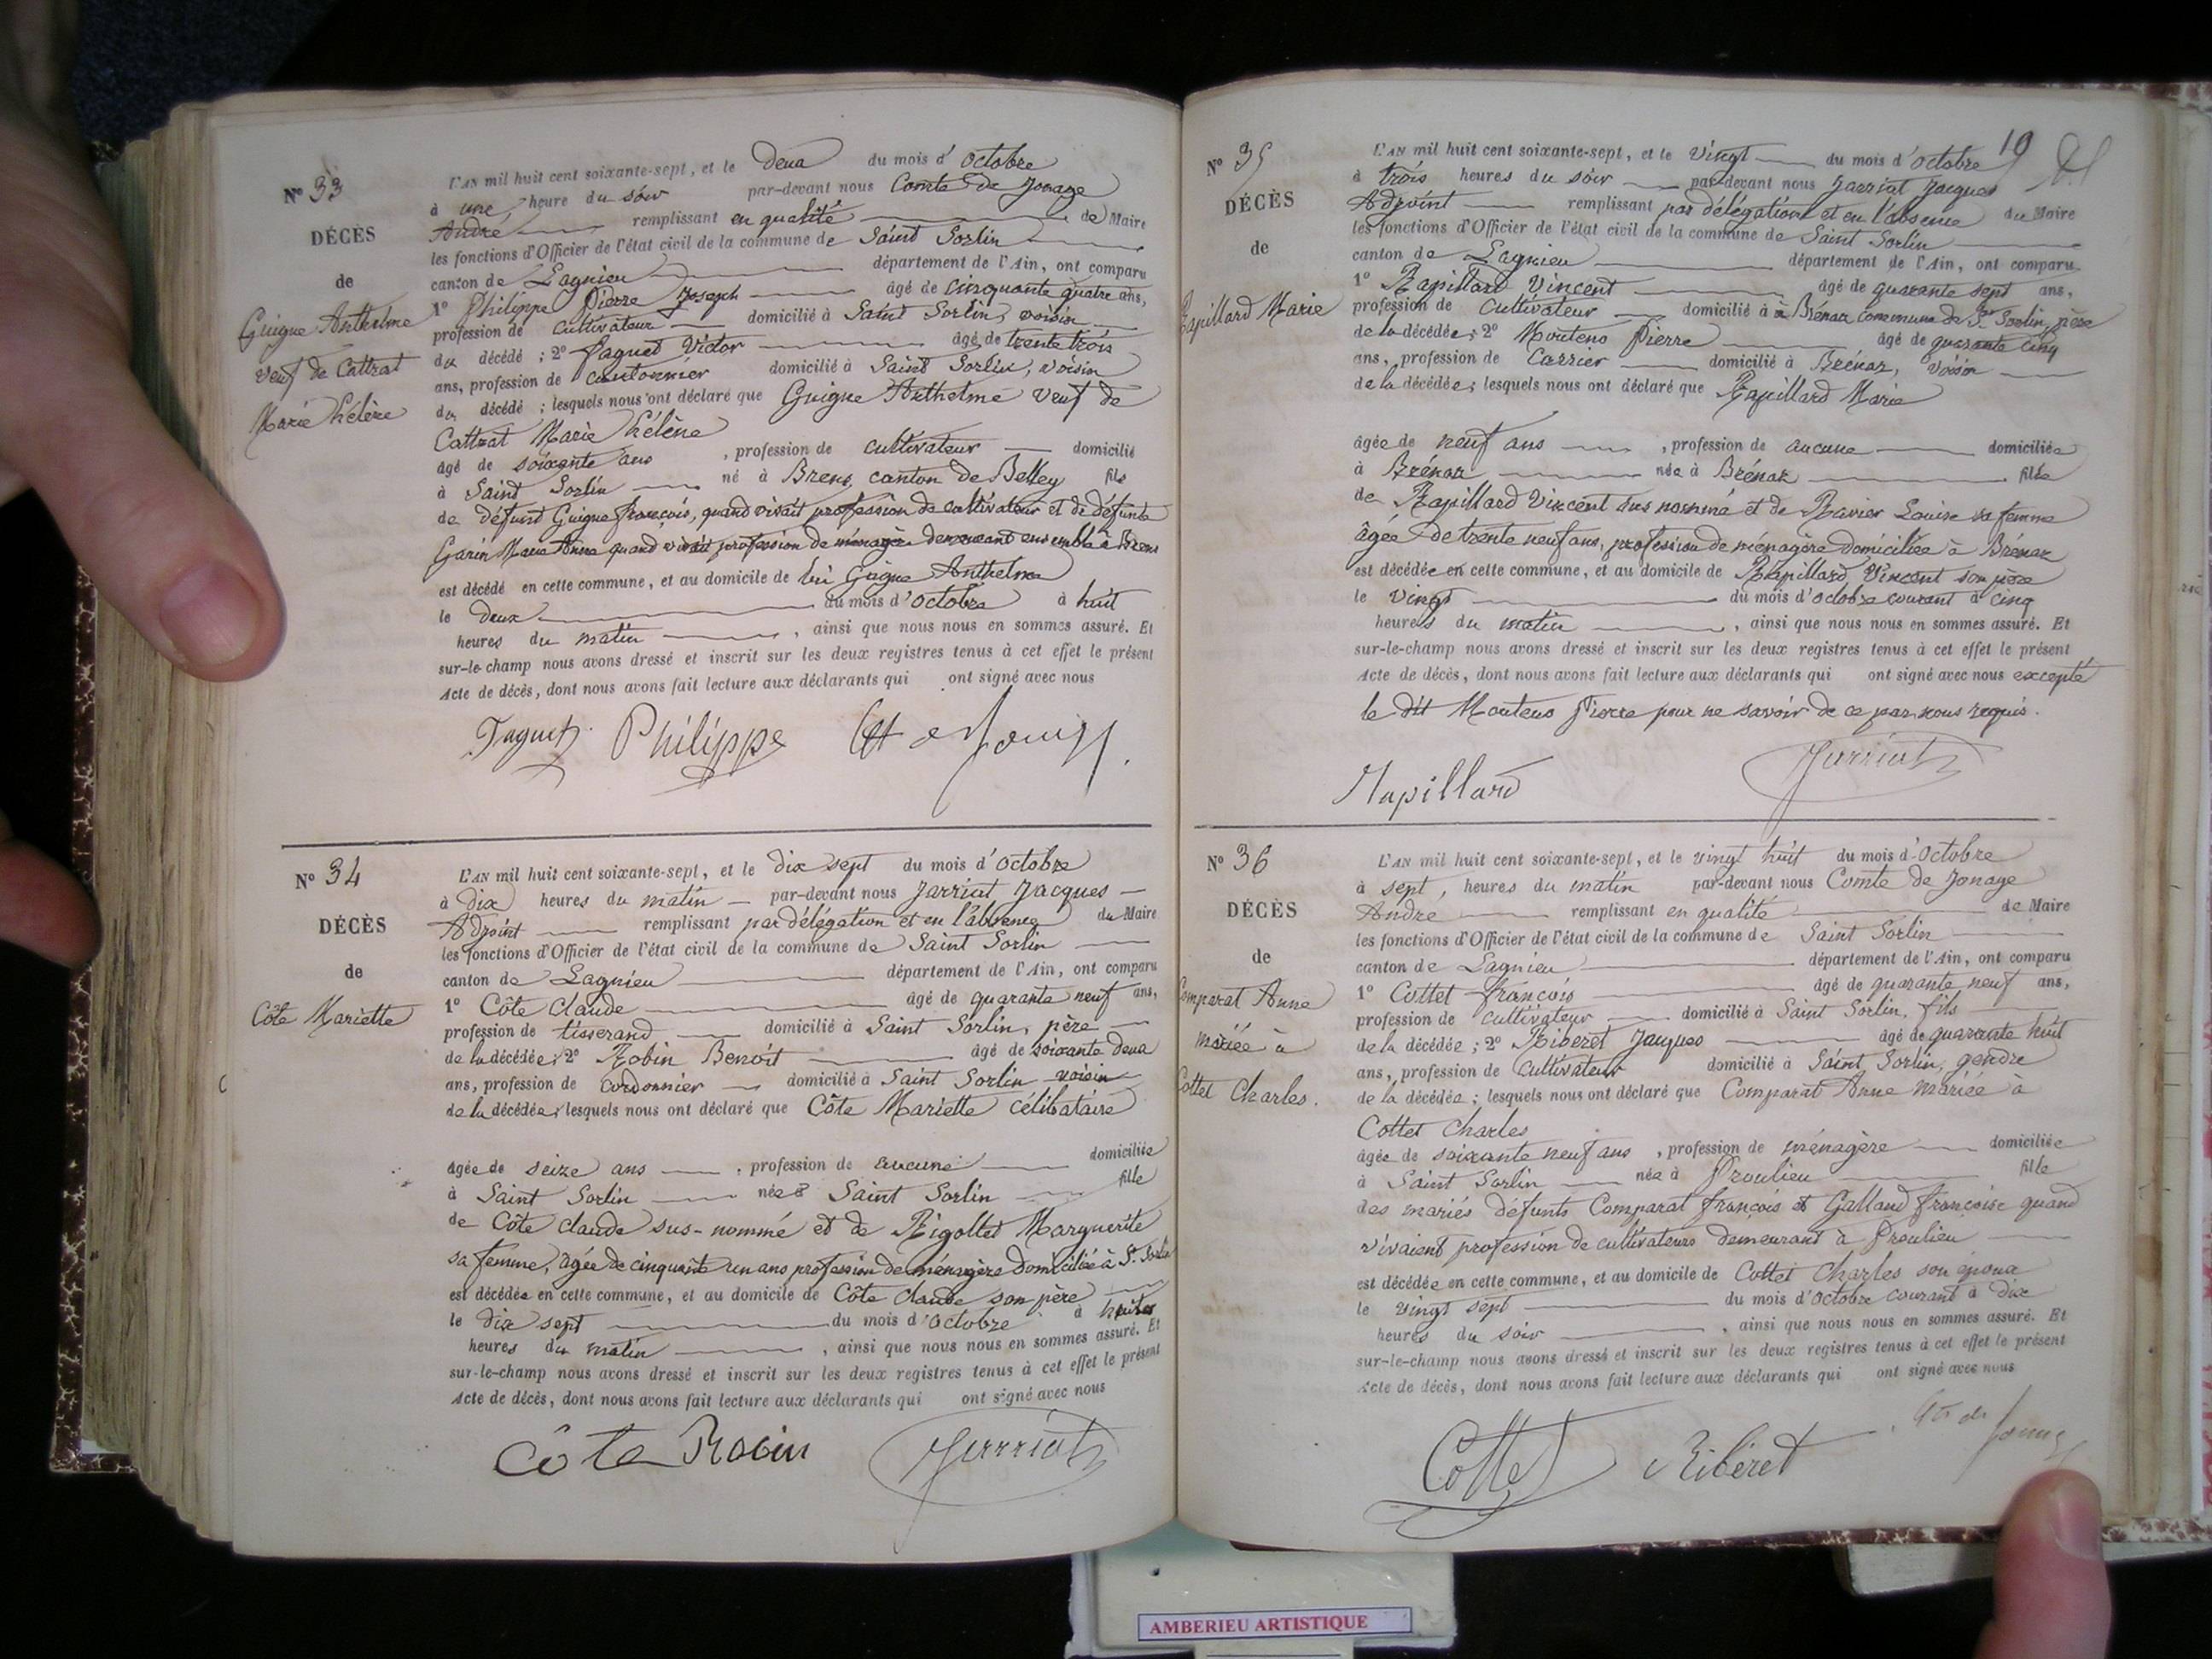 N° 33
DÉCÈS
de
Guigue Anthelme
veuf de Cattrat
Marie hélène
L'AN mil huit cent soixante-sept, et le deux du mois d'octobre
à une heure du soir par-devant nous Comte de Jonage
André remplissant en qualité de Maire
les fonctions d'Officier de l'état civil de la commune de Saint Sorlin
canton de Lagnieu département de l'Ain, ont comparu
1° Philippe Pierre Joseph âgé de cinquante quatre ans,
profession de cultivateur domicilié à Saint Sorlin, voisin
du décédé ; 2° Paquet Victor âgé de trente trois
ans, profession de cantonnier domicilié à Saint Sorlin, voisin
du décédé ; lesquels nous ont déclaré que Guigue Anthelme veuf de
Cattrat Marie hélène
âgé de soixante ans , profession de cultivateur domicilié
à Saint Sorlin né à Brens, canton de Belley fils
de défunt Guigue françois, quand vivait profession de cultivateur et de défunte
Garin Marie Anne quand vivait profession de ménagère demeurant ensemble à Brens
est décédé en cette commune, et au domicile de lui Guigue Anthelme
le deux du mois d'octobre à huit
heures du matin , ainsi que nous nous en sommes assuré. Et
sur-le-champ nous avons dressé et inscrit sur les deux registres tenus à cet effet le présent
Acte de décès, dont nous avons fait lecture aux déclarants qui ont signé avec nous
Paquet Philippe Cte de Jonage
N° 34
DÉCÈS
de
Côte Mariette
L'AN mil huit cent soixante-sept, et le dix sept du mois d'octobre
à dix heures du matin par-devant nous Jarriat Jacques
Adjoint remplissant par délégation et en l'absence du Maire
les fonctions d'Officier de l'état civil de la commune de Saint Sorlin
canton de Lagnieu département de l'Ain, ont comparu
1° Côte claude âgé de quarante neuf ans,
profession de tisserand domicilié à Saint Sorlin, père
de la décédée ; 2° Robin Benoit âgé de soixante deux
ans, profession de cordonnier domicilié à Saint Sorlin voisin
de la décédée ; lesquels nous ont déclaré que Côte Mariette célibataire
âgée de seize ans , profession de aucune domiciliée
à Saint Sorlin née à Saint Sorlin fille
de Côte claude sus-nommé et de Rigollet Marguerite
sa femme, âgée de cinquante un ans profession de ménagère domiciliée à St Sorlin
est décédée en cette commune, et au domicile de Côte claude son père
le dix sept du mois d'octobre à huit
heures du matin , ainsi que nous nous en sommes assuré. Et
sur-le-champ nous avons dressé et inscrit sur les deux registres tenus à cet effet le présent
Acte de décès, dont nous avons fait lecture aux déclarants qui ont signé avec nous
Côte Robin Jarriat
19
N° 35
DÉCÈS
de
Rapillard Marie
L'AN mil huit cent soixante-sept, et le vingt du mois d'octobre
à trois heures du soir par-devant nous Jarriat Jacques
Adjoint remplissant par délégation et en l'absence du Maire
les fonctions d'Officier de l'état civil de la commune de Saint Sorlin
canton de Lagnieu département de l'Ain, ont comparu
1° Rapillard Vincent âgé de quarante sept ans,
profession de cultivateur domicilié à à Brénaz commune de St Sorlin, père
de la décédée ; 2° Moutens Pierre âgé de quarante cinq
ans, profession de carrier domicilié à Brénaz, voisin
de la décédée ; lesquels nous ont déclaré que Rapillard Marie
âgée de neuf ans , profession de aucune domiciliée
à Brénaz née à Brénaz fille
de Rapillard Vincent sus nommé et de Ravier Louise sa femme
âgée de trente neuf ans, profession de ménagère domiciliée à Brénaz
est décédée en cette commune, et au domicile de Rapillard Vincent son père
le vingt du mois d'octobre courant à cinq
heures du matin , ainsi que nous nous en sommes assuré. Et
sur-le-champ nous avons dressé et inscrit sur les deux registres tenus à cet effet le présent
Acte de décès, dont nous avons fait lecture aux déclarants qui ont signé avec nous excepté
le dit Moutens Pierre pour ne savoir de ce par nous requis.
Rapillard Jarriat
N° 36
DÉCÈS
de
Comparat Anne
mariée à
Cottet Charles.
L'AN mil huit cent soixante-sept, et le vingt huit du mois d'octobre
à sept heures du matin par-devant nous Comte de Jonage
André remplissant en qualité de Maire
les fonctions d'Officier de l'état civil de la commune de Saint Sorlin
canton de Lagnieu département de l'Ain, ont comparu
1° Cottet françois âgé de quarante neuf ans,
profession de cultivateur domicilié à Saint Sorlin, fils
de la décédée ; 2° Riberet Jacques âgé de quarante huit
ans, profession de cultivateur domicilié à Saint Sorlin, gendre
de la décédée ; lesquels nous ont déclaré que Comparat Anne mariée à
Cottet Charles
âgée de soixante neuf ans , profession de ménagère domiciliée
à Saint Sorlin née à Proulieu fille
des mariés défunts Comparat françois et Galland françoise quand
vivaient profession de cultivateurs demeurant à Proulieu
est décédée en cette commune, et au domicile de Cottet Charles son époux
le vingt sept du mois d'octobre courant à dix
heures du soir , ainsi que nous nous en sommes assuré. Et
sur-le-champ nous avons dressé et inscrit sur les deux registres tenus à cet effet le présent
Acte de décès, dont nous avons fait lecture aux déclarants qui ont signé avec nous
Cottet Riberet Cte de Jonage
AMBERIEU ARTISTIQUE